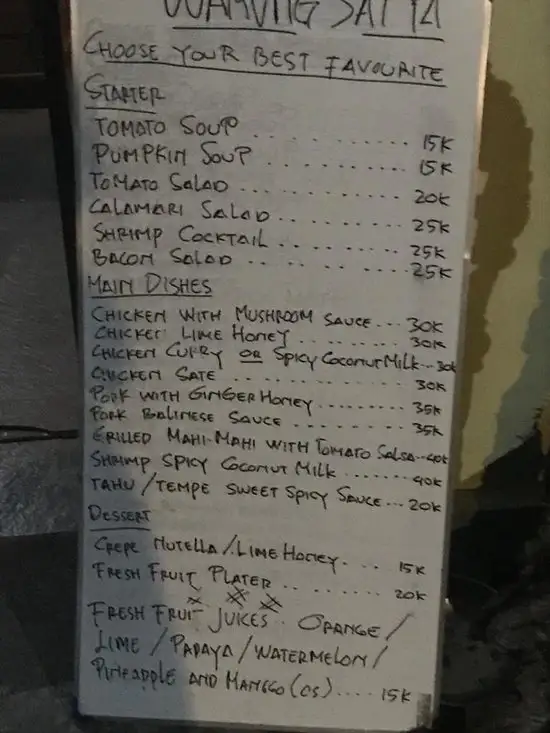 WARUNG SATIA
CHOOSE YOUR BEST FAVOURITE
STARTER
TOMATO SOUP ........... 15K
PUMPKIN SOUP ........... 15K
TOMATO SALAD ........... 20K
CALAMARI SALAD ......... 25K
SHRIMP COCKTAIL ......... 25K
BACON SALAD .. ......... 25K
MAIN DISHES
CHICKEN WITH MUSHROOM SAUCE... 30K
CHICKEN LIME HONEY .......... 30K
CHICKEN CURRY OR SPICY COCONUT MILK.. 30K
CHICKEN SATE .......... 30K
PORK WITH GINGER HONEY ........ 35K
PORK BALINESE SAUCE ....... 35K
GRILLED MAHI-MAHI WITH TOMATO SALSA..40K
SHRIMP SPICY COCONUT MILK ....... 40K
TAHU/TEMPE SWEET SPICY SAUCE... 20K
DESSERT
CREPE NUTELLA/LIME HONEY. ... 15K
FRESH FRUIT PLATER .. ...... 20K
FRESH FRUIT JUICES.. ORANGE/
LIME/PAPAYA/WATERMELON/
PINEAPPLE AND MANGGO (OS).... 15K